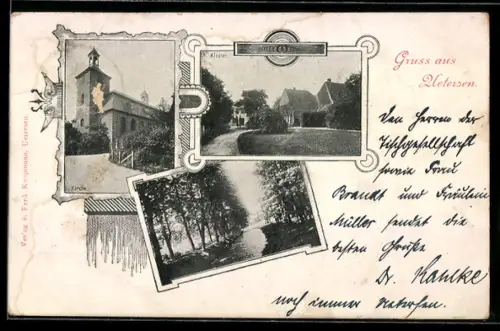 Gruss aus
Uetersen.
Kloster
Kirche
Verlag v. Ferd. Koopmann, Uetersen.
Den Herren der
Tischgesellschaft
sowie Frau
Brandt und Fräulein
Müller sendet die
besten Grüße
Dr. Kamcke
noch immer Uetersen.